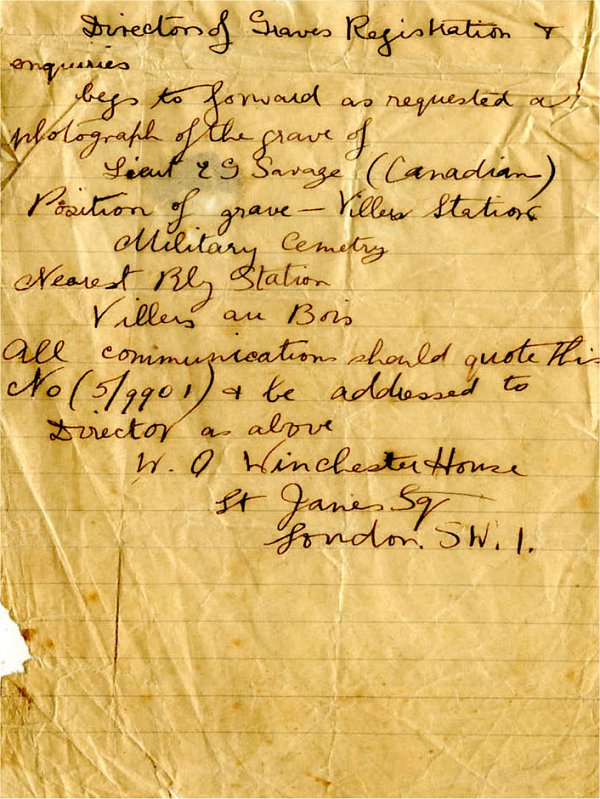 Director of Graves Registration &
enquiries
begs to forward as requested a
photograph of the grave of
Lieut E G Savage (Canadian)
Position of grave - Villers Station
Military Cemetry
Nearest Rly Station
Villers au Bois
All communications should quote this
No (5/9901) & be addressed to
Director as above
W. O Winchester House
St James Sq
London. S W. 1.